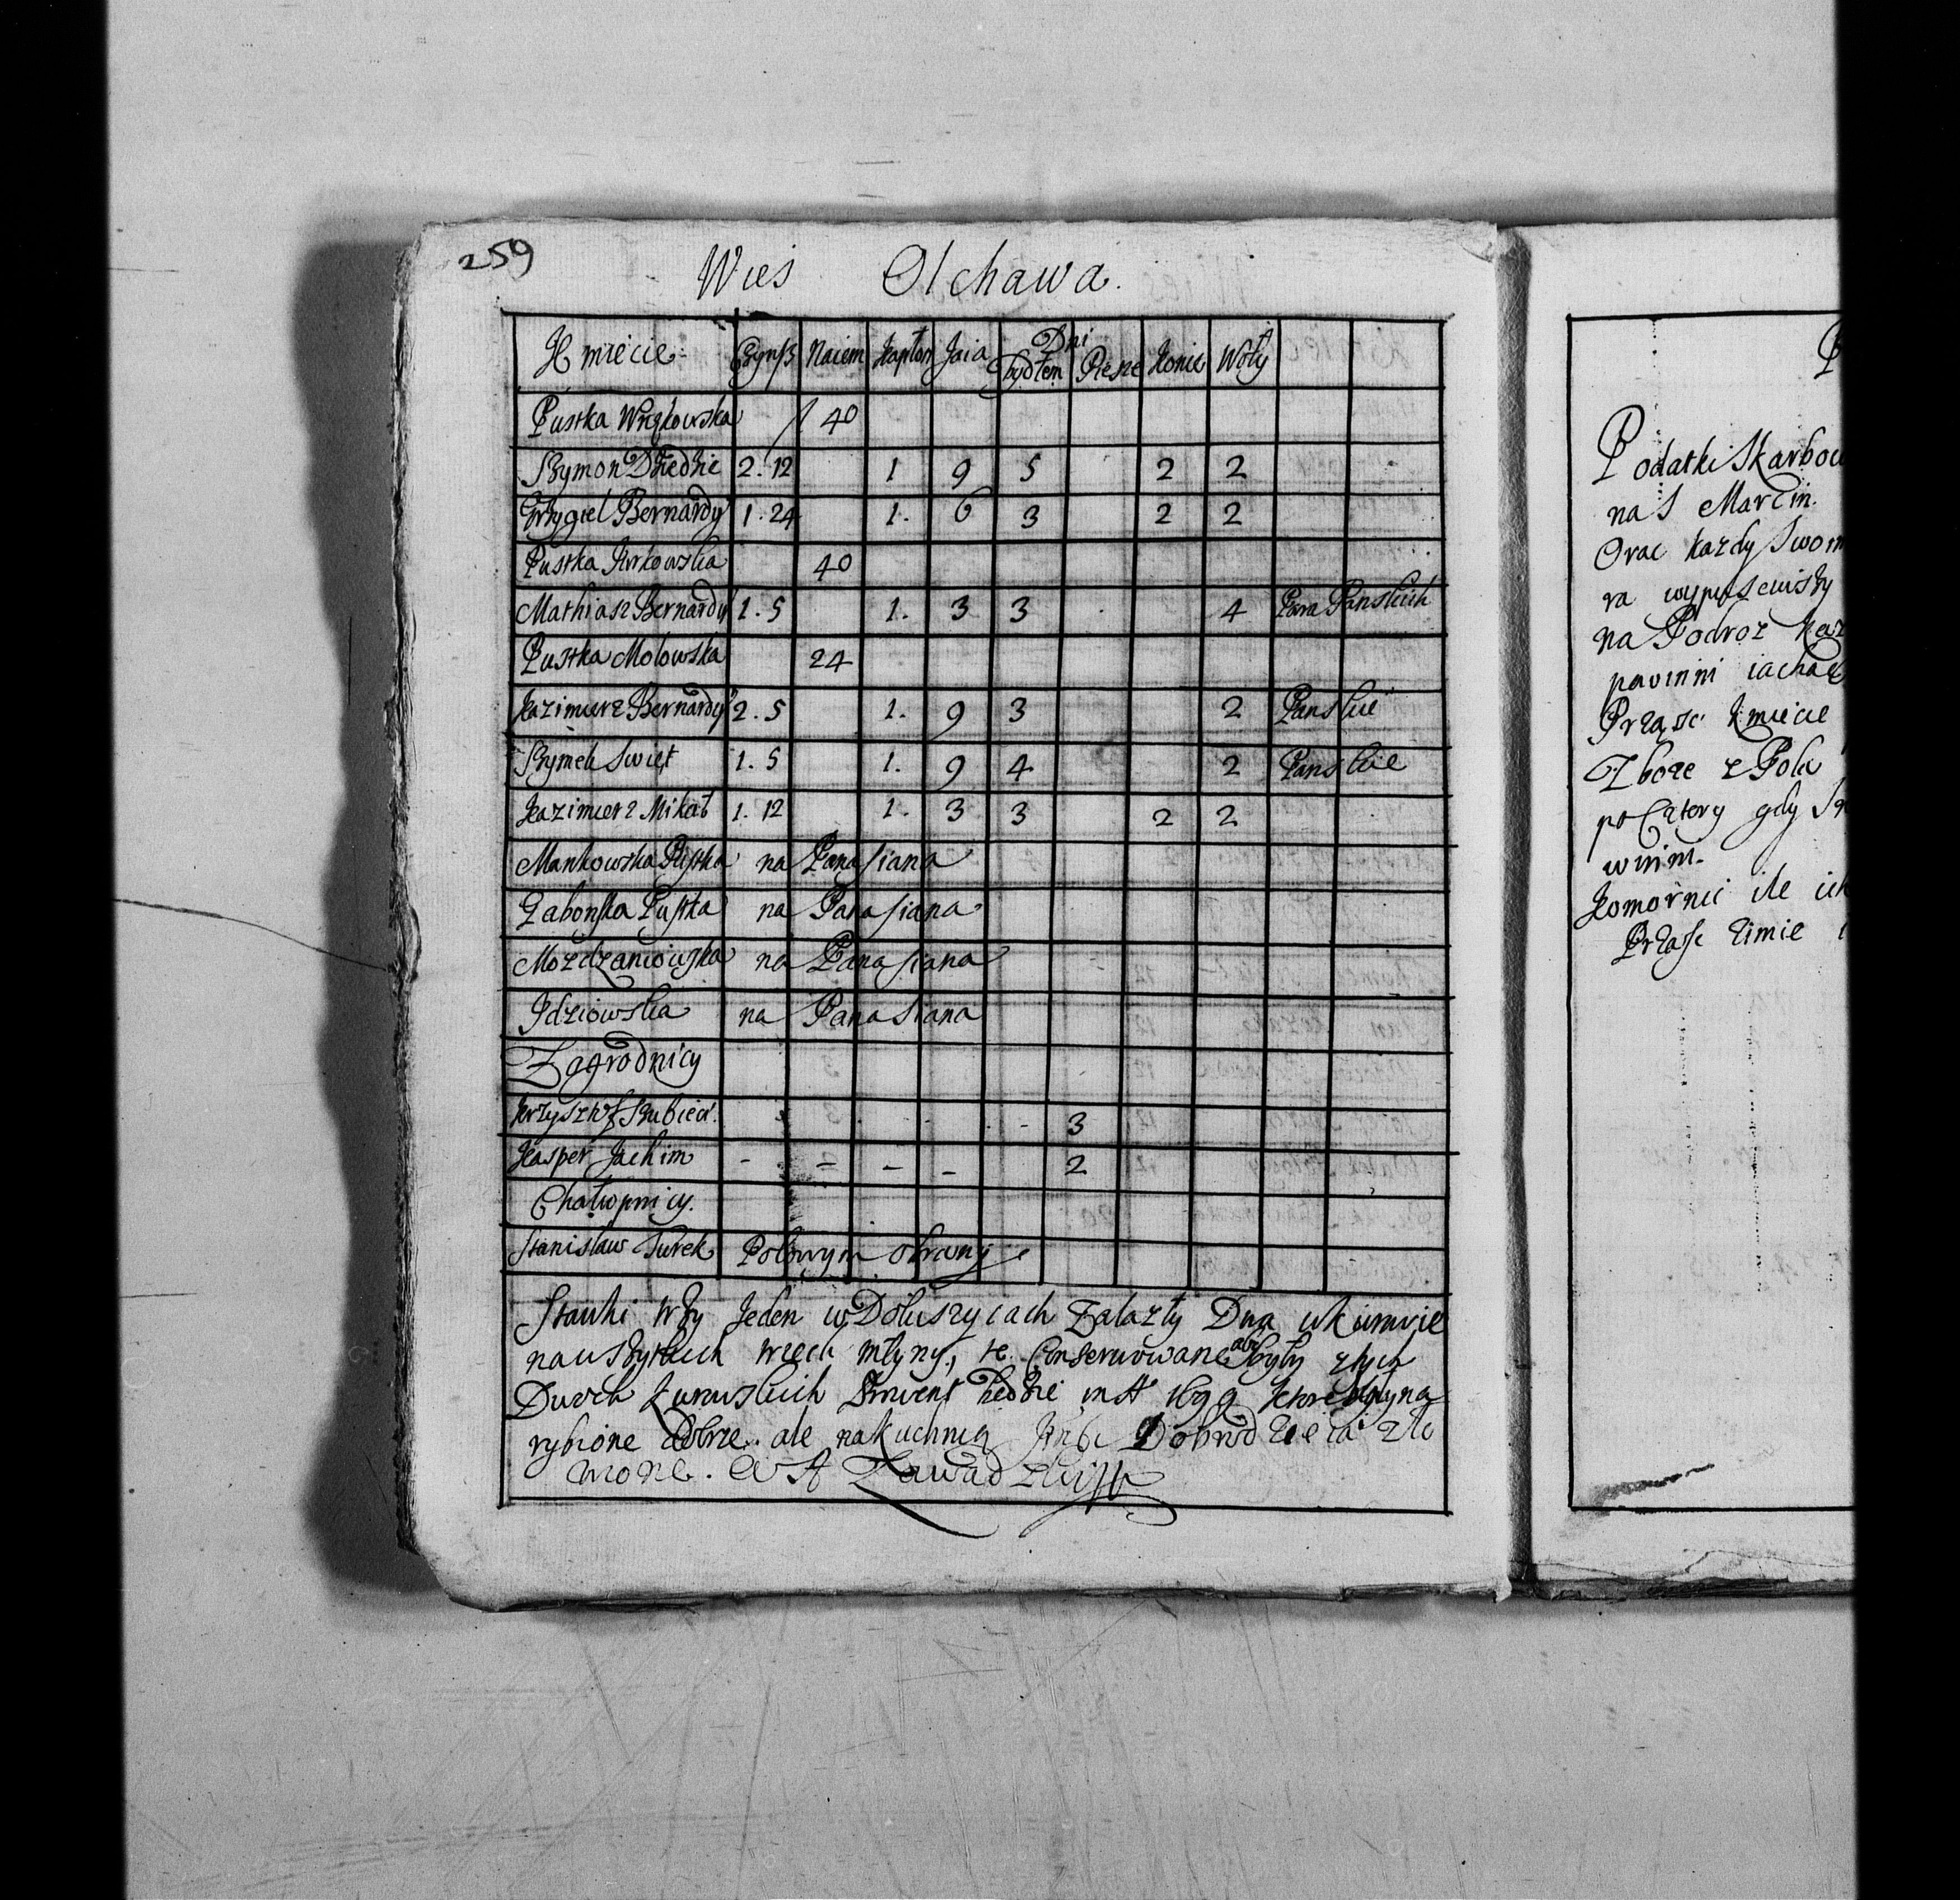 259
Wies Olchawa.
Kmiecie Czynß Naiem Kapłon Jaia Dni Bydłem Piesze Konie Woły
Pustka Wnękowska 40
Szymon Dziedzic 2.12 1 9 5 2 2
Grygiel Bernardy 1.24 1. 6 3 2 2
Pustka Kirkowska 40
Mathiasz Bernardy 1.5 1. 3 3 4 Para Panskich
Pustka Molowska 24
Kazimierz Bernardy 2.5 1. 9 3 2 Panskie
Szymek Swięt 1.5 1. 9 4 2 Panskie
Kazimierz Mikał 1.12 1. 3 3 2 2
Mankowska Pustka na Pana siana
Zabonska Pustka na Pana siana
Mozdzaniowska na Pana siana
Jdziowska na Pana Siana
Zagrodnicy
Krzysztof Kubica. - 3
Kasper Jachim - - - - 2
Chałupnicy.
Stanisław Turek Polowym obrany
Stawki trzy Jeden w Doluszycach Zalazły Dwa w Kurowie
na wszytkich trzech młyny, te Conserwowane aby były z tych
Dwoch Kurowskich będzie in Aº 1699 Ktore młyna
rybione dobrze ale na kuchnią Dobrodzieia
A Zawadzki
P
Podatki Skarbow
na S Marcin.
Orac kazdy Swom
ra wypusciwszy
na Podroz kaz
powinni iachac
Prząsc Kmiecie
Zboze z Pola
po Cztery gdy
winni.
Komornicy ile ich
Prząsc Zimie